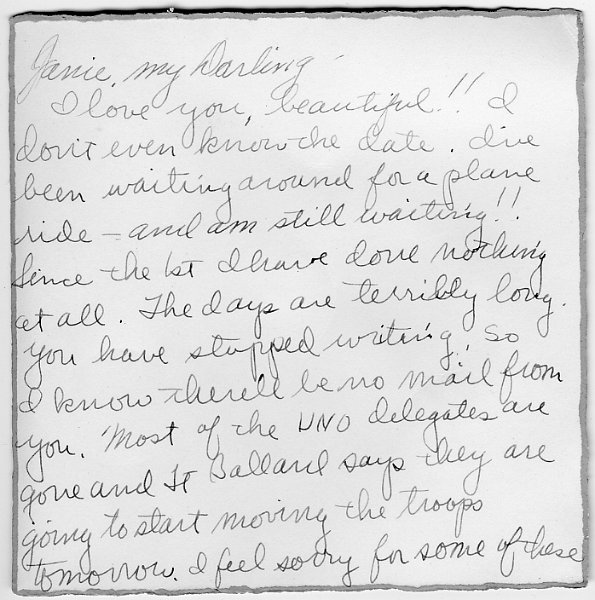 Janie, my Darling -
I love you, beautiful!! I
don't even know the date. I've
been waiting around for a plane
ride - and am still waiting!!
Since the 1st I have done nothing
at all. The days are terribly long.
You have stopped writing, so
I know there'll be no mail from
you. Most of the UNO delegates are
gone and Lt Ballard says they are
going to start moving the troops
tomorrow. I feel sorry for some of these